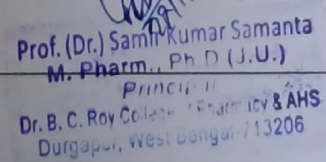 Prof. (Dr.) Samir Kumar Samanta
M. Pharm., Ph.D (J.U.)
Principal
Dr. B. C. Roy College Pharmacy & AHS
Durgapur, West Bengal-713206